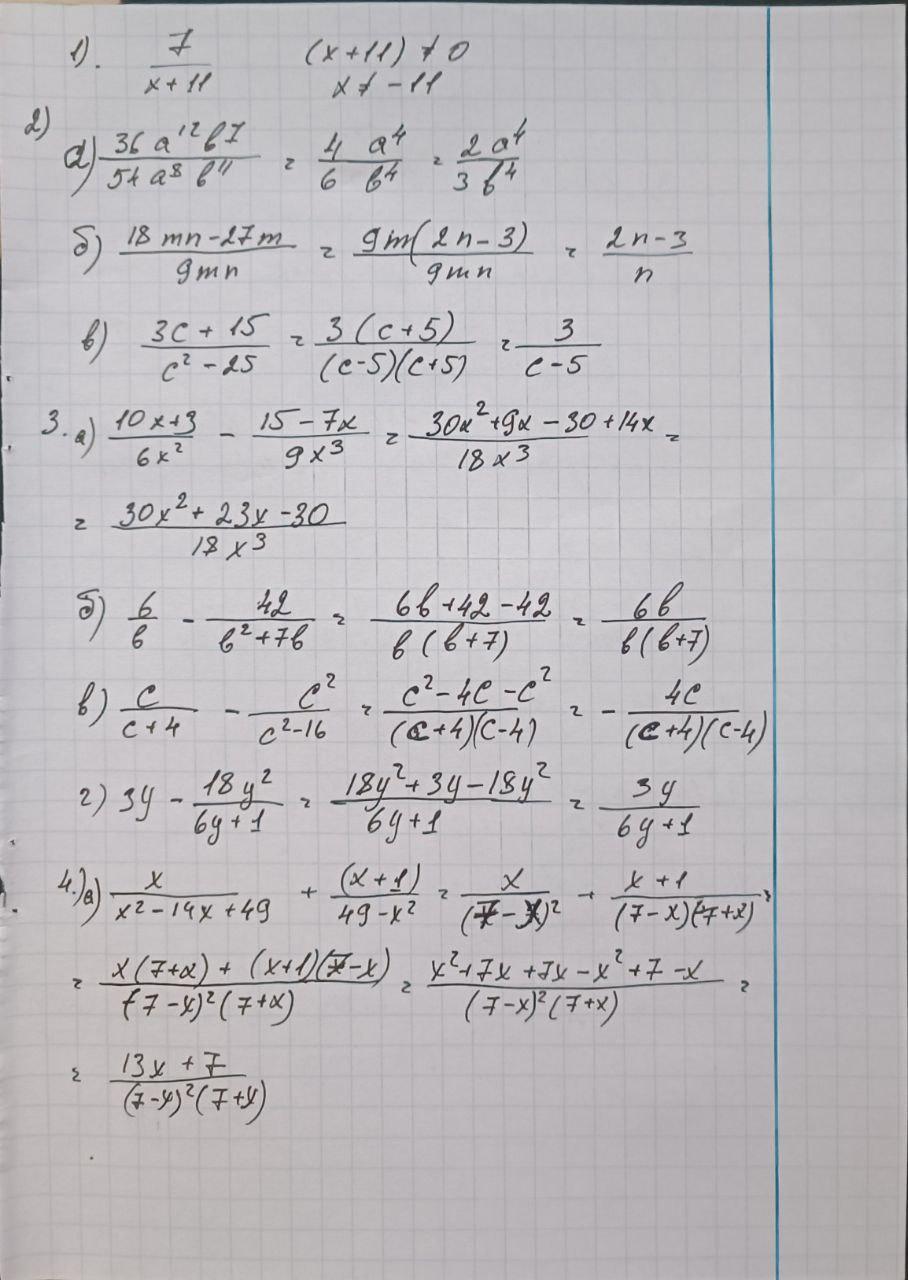 1). 7/(x+11) (x+11) ≠ 0
x ≠ -11
2)
a) 36a¹²b⁷/54a⁸b¹¹ = 4a⁴/6b⁴ = 2a⁴/3b⁴
б) (18mn-27m)/9mn = 9m(2n-3)/9mn = (2n-3)/n
в) (3c+15)/(c²-25) = 3(c+5)/(c-5)(c+5) = 3/(c-5)
3. а) (10x+3)/6x² - (15-7x)/9x³ = (30x²+9x-30+14x)/18x³ =
= (30x²+23x-30)/18x³
б) 6/b - 42/(b²+7b) = (6b+42-42)/b(b+7) = 6b/b(b+7)
в) c/(c+4) - c²/(c²-16) = (c²-4c-c²)/(c+4)(c-4) = - 4c/(c+4)(c-4)
г) 3y - 18y²/(6y+1) = (18y²+3y-18y²)/(6y+1) = 3y/(6y+1)
4.) а) x/(x²-14x+49) + (x+1)/(49-x²) = x/(7-x)² + (x+1)/(7-x)(7+x) =
= (x(7+x)+(x+1)(7-x))/(7-x)²(7+x) = (x²+7x+7x-x²+7-x)/(7-x)²(7+x) =
= (13x+7)/(7-x)²(7+x)